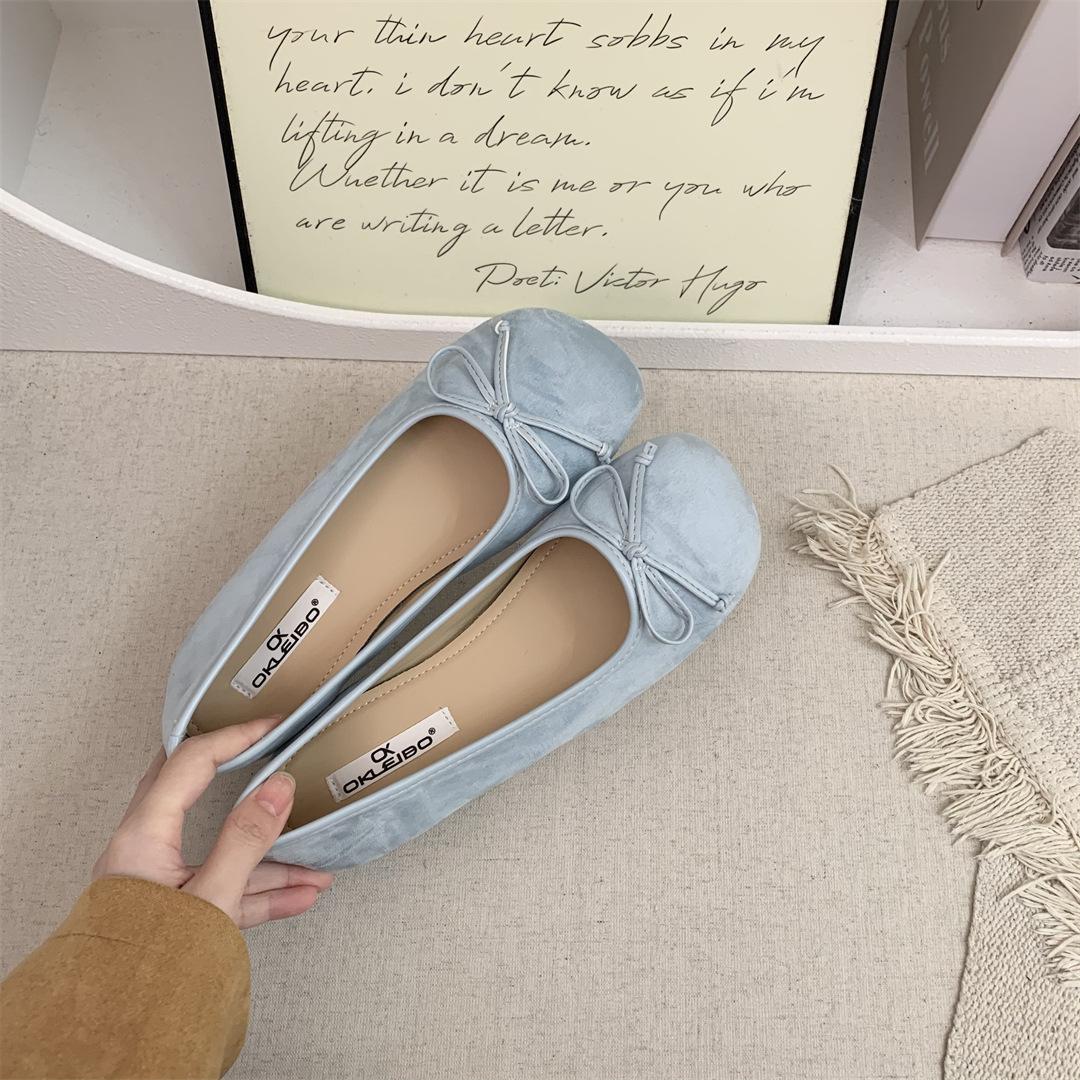 your thin heart sobbs in my
heart. i don't know as if i'm
lifting in a dream.
Wuether it is me or you who
are writing a letter.
Poet: Victor Hugo
OK
OKLEIBO®
OK
OKLEIBO®